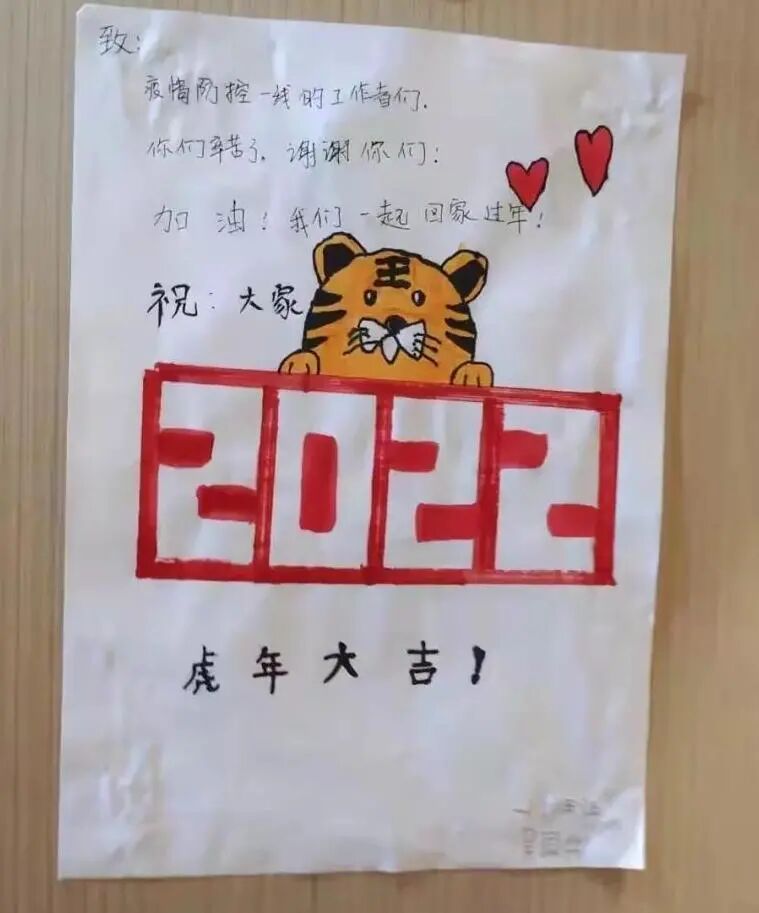 致:
疫情防控一线的工作者们.
你们辛苦了.谢谢你们!
加油!我们一起回家过年!
祝:大家
王
2022
虎年大吉!